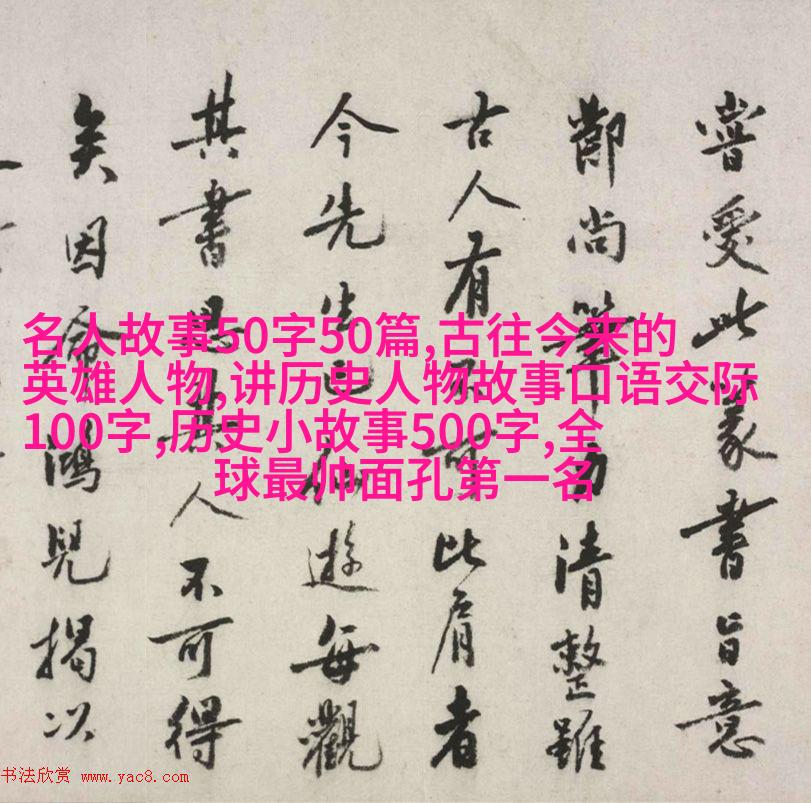 嘗受此篆書旨意
尚筆力清整雖
古人有不可比肩者
今先生已仙遊每觀
其書思其人不可得
矣因鴻兒揭以
名人故事50字50篇,古往今来的
英雄人物,讲历史人物故事口语交际
100字,历史小故事500字,全
球最帅面孔第一名
书法欣赏 www.yac8.com